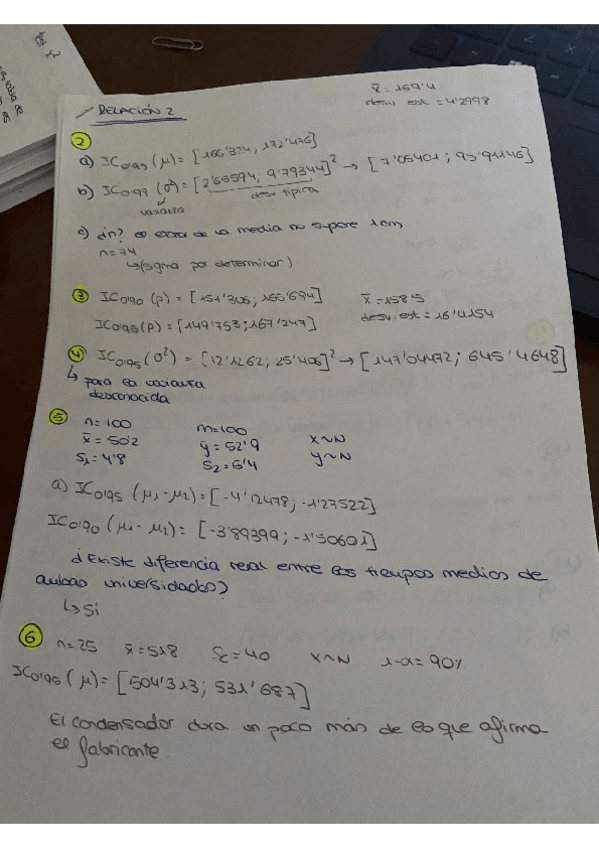 x̄ = 169'4
desv est = 4'2998
RELACIÓN 2
2
a) IC0'95 (μ) = [166'324, 172'476]
b) IC0'99 (σ²) = [2'65594, 9'79344]² → [7'05401; 95'91146]
varianza
desv típica
c) ¿n? error de la media no supere 1cm
n=74
↳(sigma por determinar)
3 IC0'90 (μ) = [151'306; 165'694] x̄ = 158'5
IC0'95 (μ) = [149'753; 167'247] desv. est = 16'4154
4 IC0'95 (σ²) = [12'1262; 25'406]² → [147'04472; 645'4648]
↳ para la varianza
desconocida
5 n=100 m=100
x̄ = 50'2 ȳ = 52'9 x~N
S₁ = 4'8 S₂ = 5'4 y~N
a) IC0'95 (μ₁-μ₂) = [-4'12478; -1'27522]
IC0'90 (μ₁-μ₂) = [-3'89399; -1'50601]
¿Existe diferencia real entre los tiempos medios de
ambas universidades?
↳ Sí
6 n=25 x̄=518 Sc=40 x~N 1-α=90%
IC0'95 (μ) = [504'313; 531'687]
El condensador dura un poco más de lo que afirma
el fabricante.